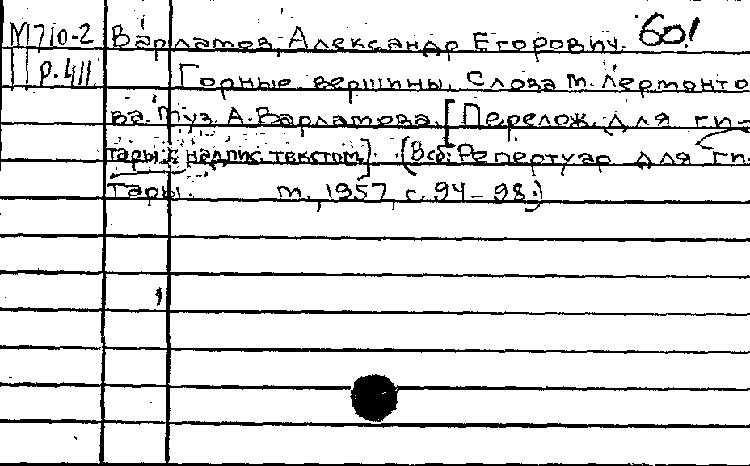 М710-2 Варламов, Александр Егорович. 60!
Р.411 Горные вершины. Слова М. Лермонто
ва. Муз. А. Варламова. [Перелож. для ги-
тары с надпис. текстом]. (В сб: Репертуар для ги-
тары. М., 1957, с. 94-98.)